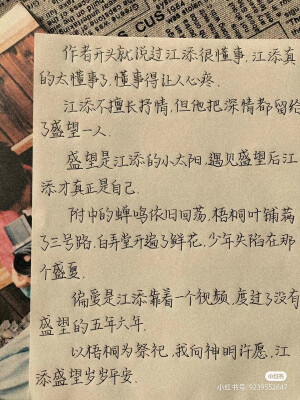 作者开头就说过江添很懂事,江添真
的太懂事了,懂事得让人心疼.
江添不擅长抒情,但他把深情都留给
了盛望一人.
盛望是江添的小太阳,遇见盛望后江
添才真正是自己.
附中的蝉鸣依旧回荡,梧桐叶铺满
了三号路,白弄堂开遍了鲜花,少年失陷在那
个盛夏.
偏爱是江添靠着一个视频,度过了没有
盛望的五年大年.
以梧桐为祭祀,我向神明许愿,江
添盛望岁岁平安.
小红书
小红书号:9239552647
CUS